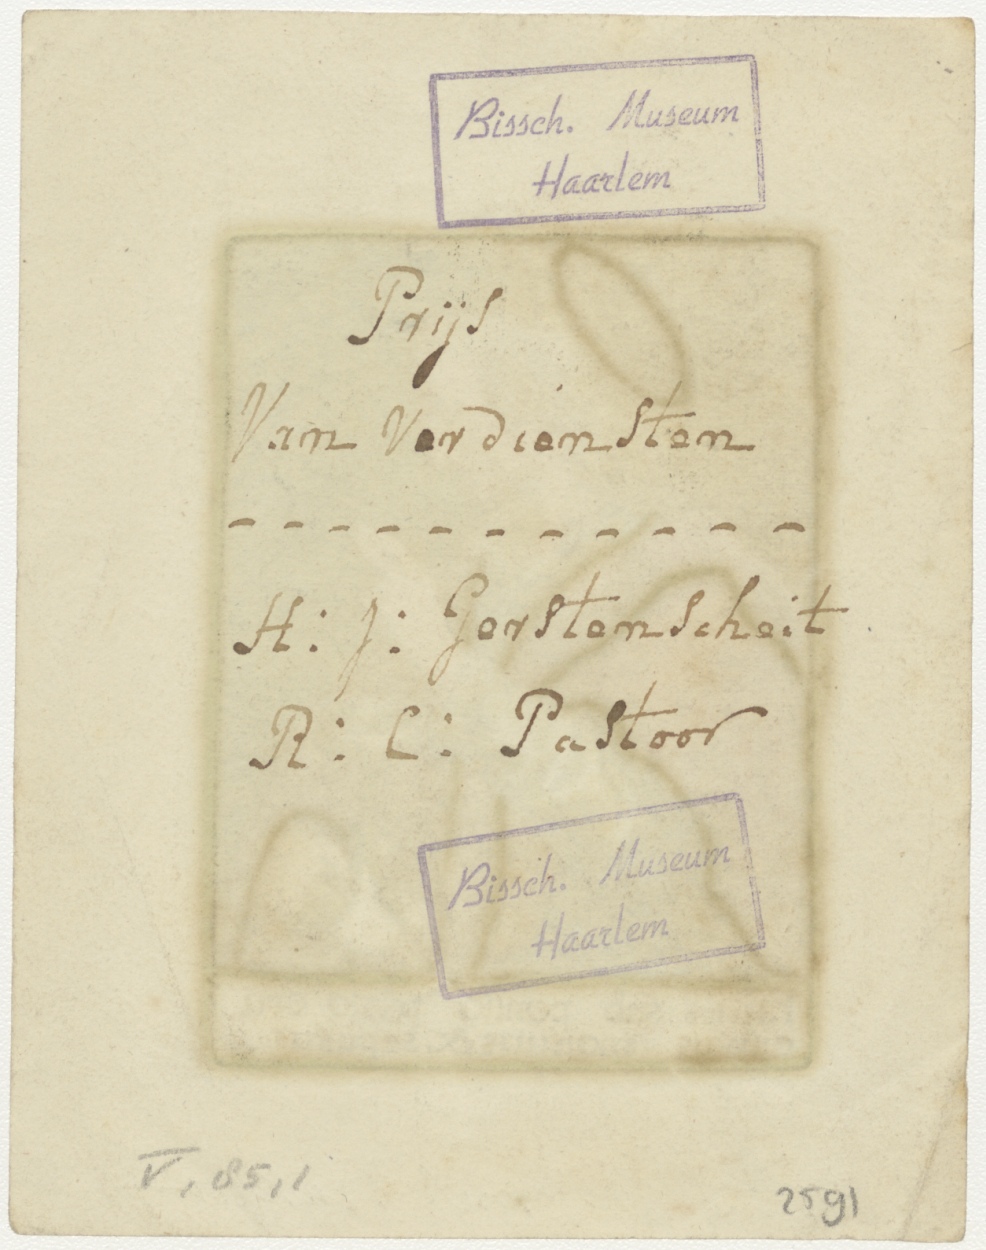 Bissch. Museum
Haarlem
Prijs
Van Verdiensten
H: J: Gerstenscheit
R: C: Pastoor
Bissch. Museum
Haarlem
V, 85,1
2591